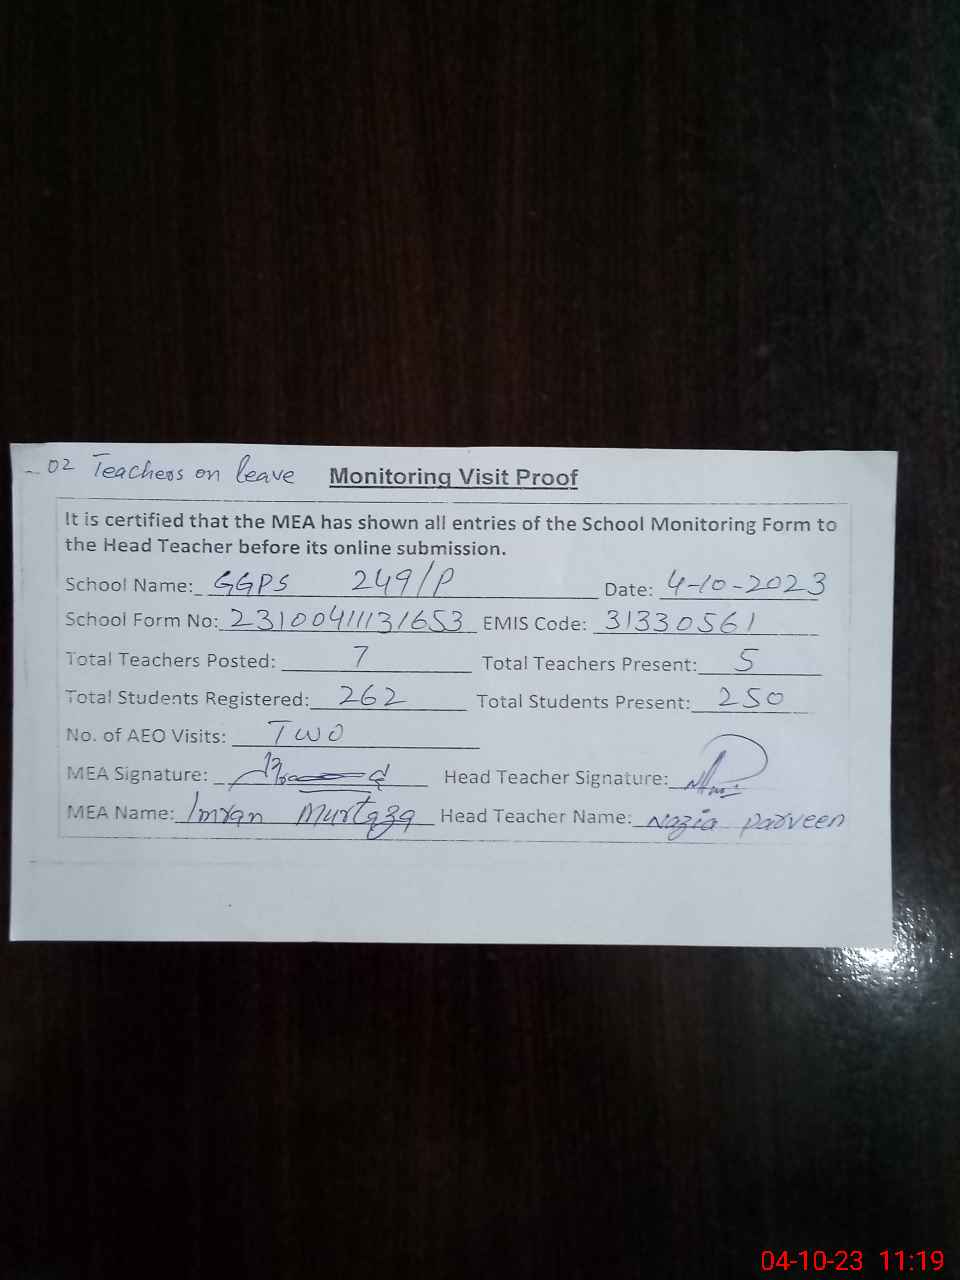 02 Teachers on leave Monitoring Visit Proof
It is certified that the MEA has shown all entries of the School Monitoring Form to
the Head Teacher before its online submission.
School Name: GGPS 249/P Date: 4-10-2023
School Form No: 23100411131653 EMIS Code: 31330561
Total Teachers Posted: 7 Total Teachers Present: 5
Total Students Registered: 262 Total Students Present: 250
No. of AEO Visits: Two
MEA Signature: Head Teacher Signature:
MEA Name: Imran Murtaza Head Teacher Name: Nazia Parveen
04-10-23 11:19